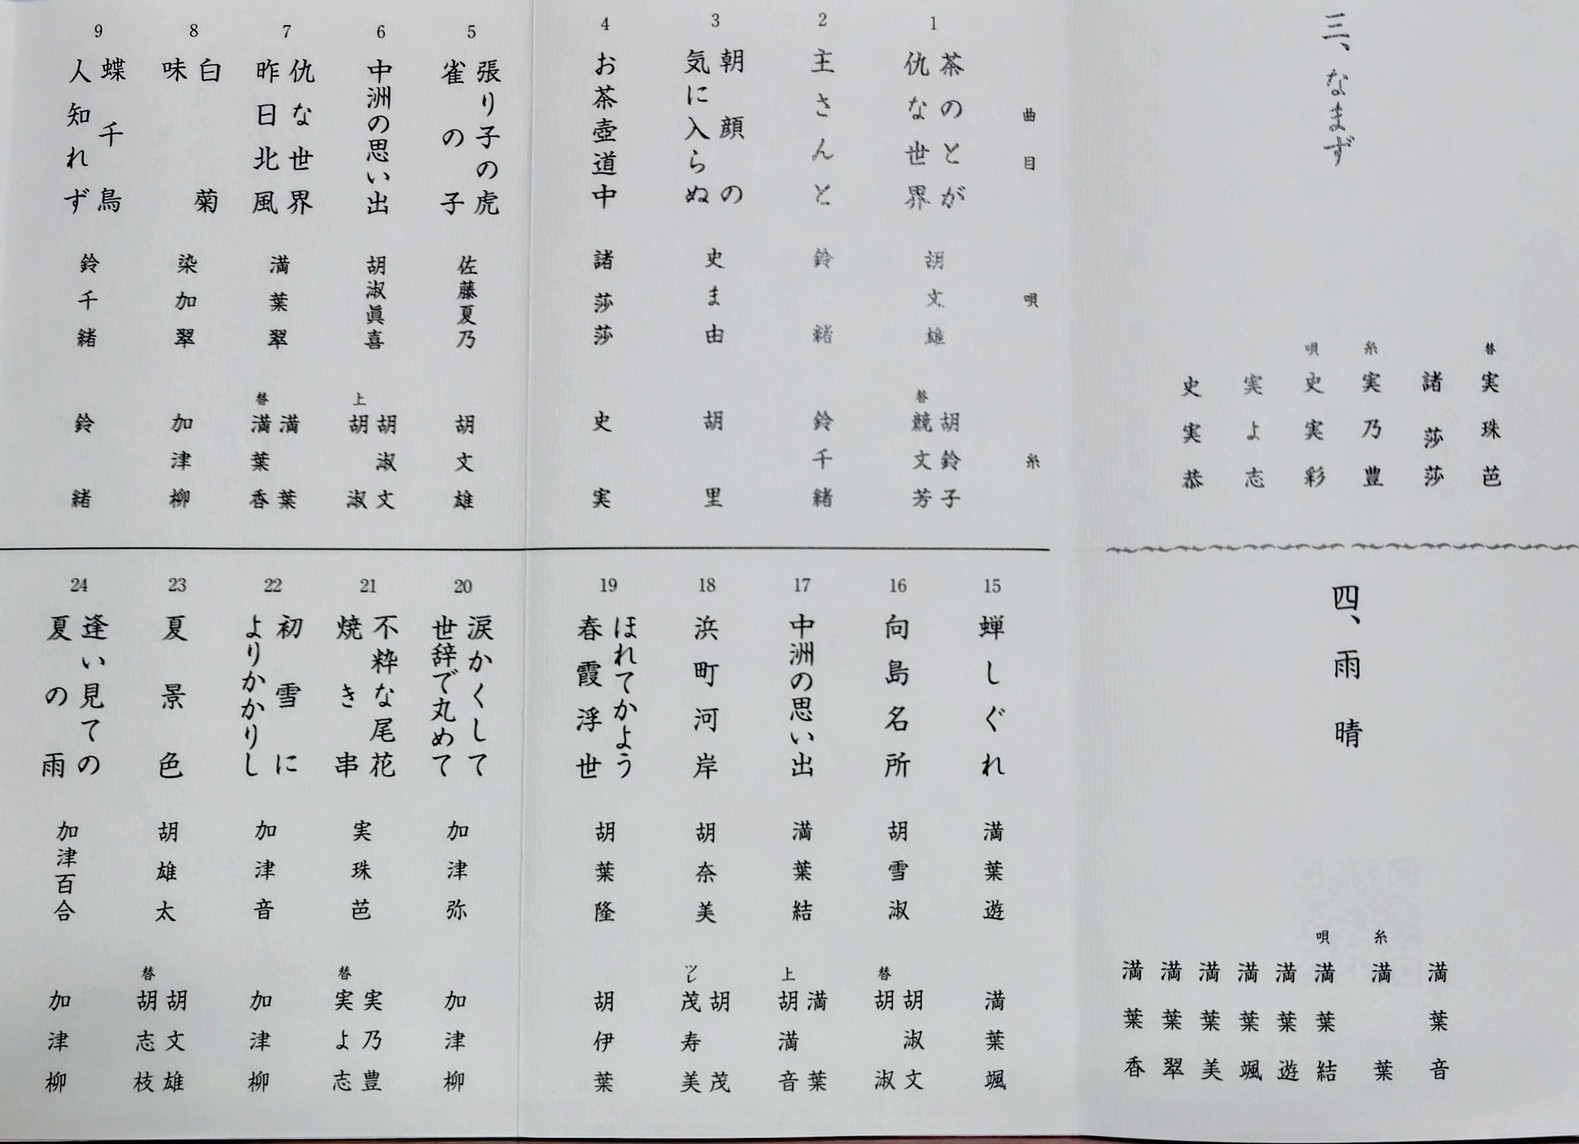 三、なまず
替 実珠芭
諸莎莎
糸 実乃豊
唄 史実彩
実よ志
史実恭
四、雨晴
満葉音
糸 満葉
唄 満葉結
満葉遊
満葉颯
満葉美
満葉翠
満葉香
曲目 唄 糸
1
茶のとが
仇な世界
胡文雄
胡鈴子
替 競文芳
2
主さんと
鈴緒
鈴千緒
3
朝顔の
気に入らぬ
史ま由
胡里
4
お茶壺道中
諸莎莎
史実
5
張り子の虎
雀の子
佐藤夏乃
胡文雄
6
中洲の思い出
胡淑眞喜
胡淑文
上 胡淑
7
仇な世界
昨日北風
満葉翠
満葉
替 満葉香
8
白菊
味
染加翠
加津柳
9
蝶千鳥
人知れず
鈴千緒
鈴緒
15
蝉しぐれ
満葉遊
満葉颯
16
向島名所
胡雪淑
胡淑文
替 胡淑
17
中洲の思い出
満葉結
満葉
上 胡満音
18
浜町河岸
胡奈美
胡茂
ツレ 茂寿美
19
ほれてかよう
春霞浮世
胡葉隆
胡伊葉
20
涙かくして
世辞で丸めて
加津弥
加津柳
21
不粋な尾花
焼き串
実珠芭
実乃豊
替 実よ志
22
初雪に
よりかかりし
加津音
加津柳
23
夏景色
胡雄太
胡文雄
替 胡志枝
24
逢い見ての
夏の雨
加津百合
加津柳